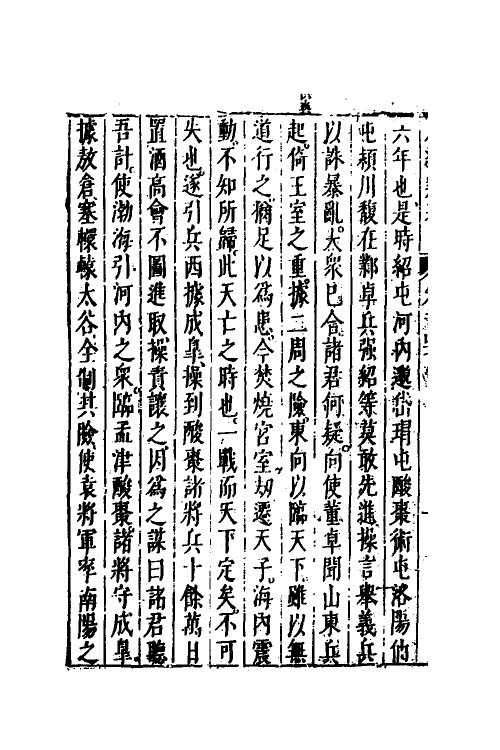 六年也是時紹屯河內邈岱瑁屯酸棗術屯洛陽伷
屯頴川馥在鄴卓兵强紹等莫敢先進操言舉義兵
以誅暴亂大衆已合諸君何疑向使董卓聞山東兵
起倚王室之重據二周之險東向以臨天下雖以無
道行之猶足以爲患今焚燒宮室刼遷天子海內震
動不知所歸此天亡之時也一戰而天下定矣不可
失也遂引兵西據成臯操到酸棗諸將兵十餘萬日
置酒高會不圖進取操責讓之因爲之謀曰諸君聽
吾計使渤海引河內之衆臨孟津酸棗諸將守成臯
據敖倉塞轘轅太谷全制其險使袁將軍率南陽之